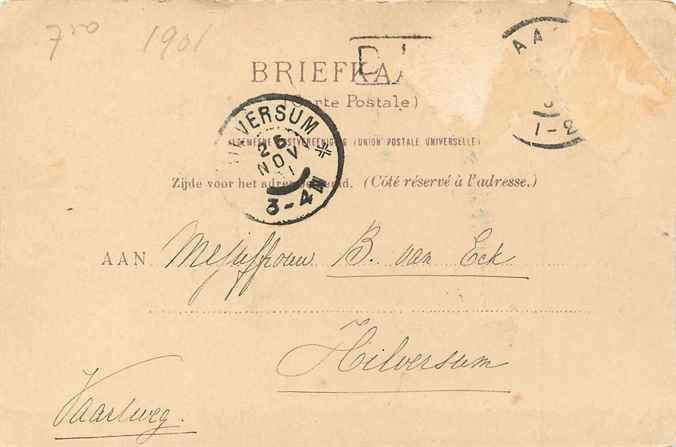 7⁵⁰ 1901
BRIEFKA
(Carte Postale)
ALGEMEENE POSTVEREENIGING (UNION POSTALE UNIVERSELLE)
Zijde voor het adres bestemd. (Côté réservé à l'adresse.)
VERSUM
26
NOV
1
3-4N
AA
1-2
AAN Mejuffrouw B. van Eck
Hilversum
Vaartweg.